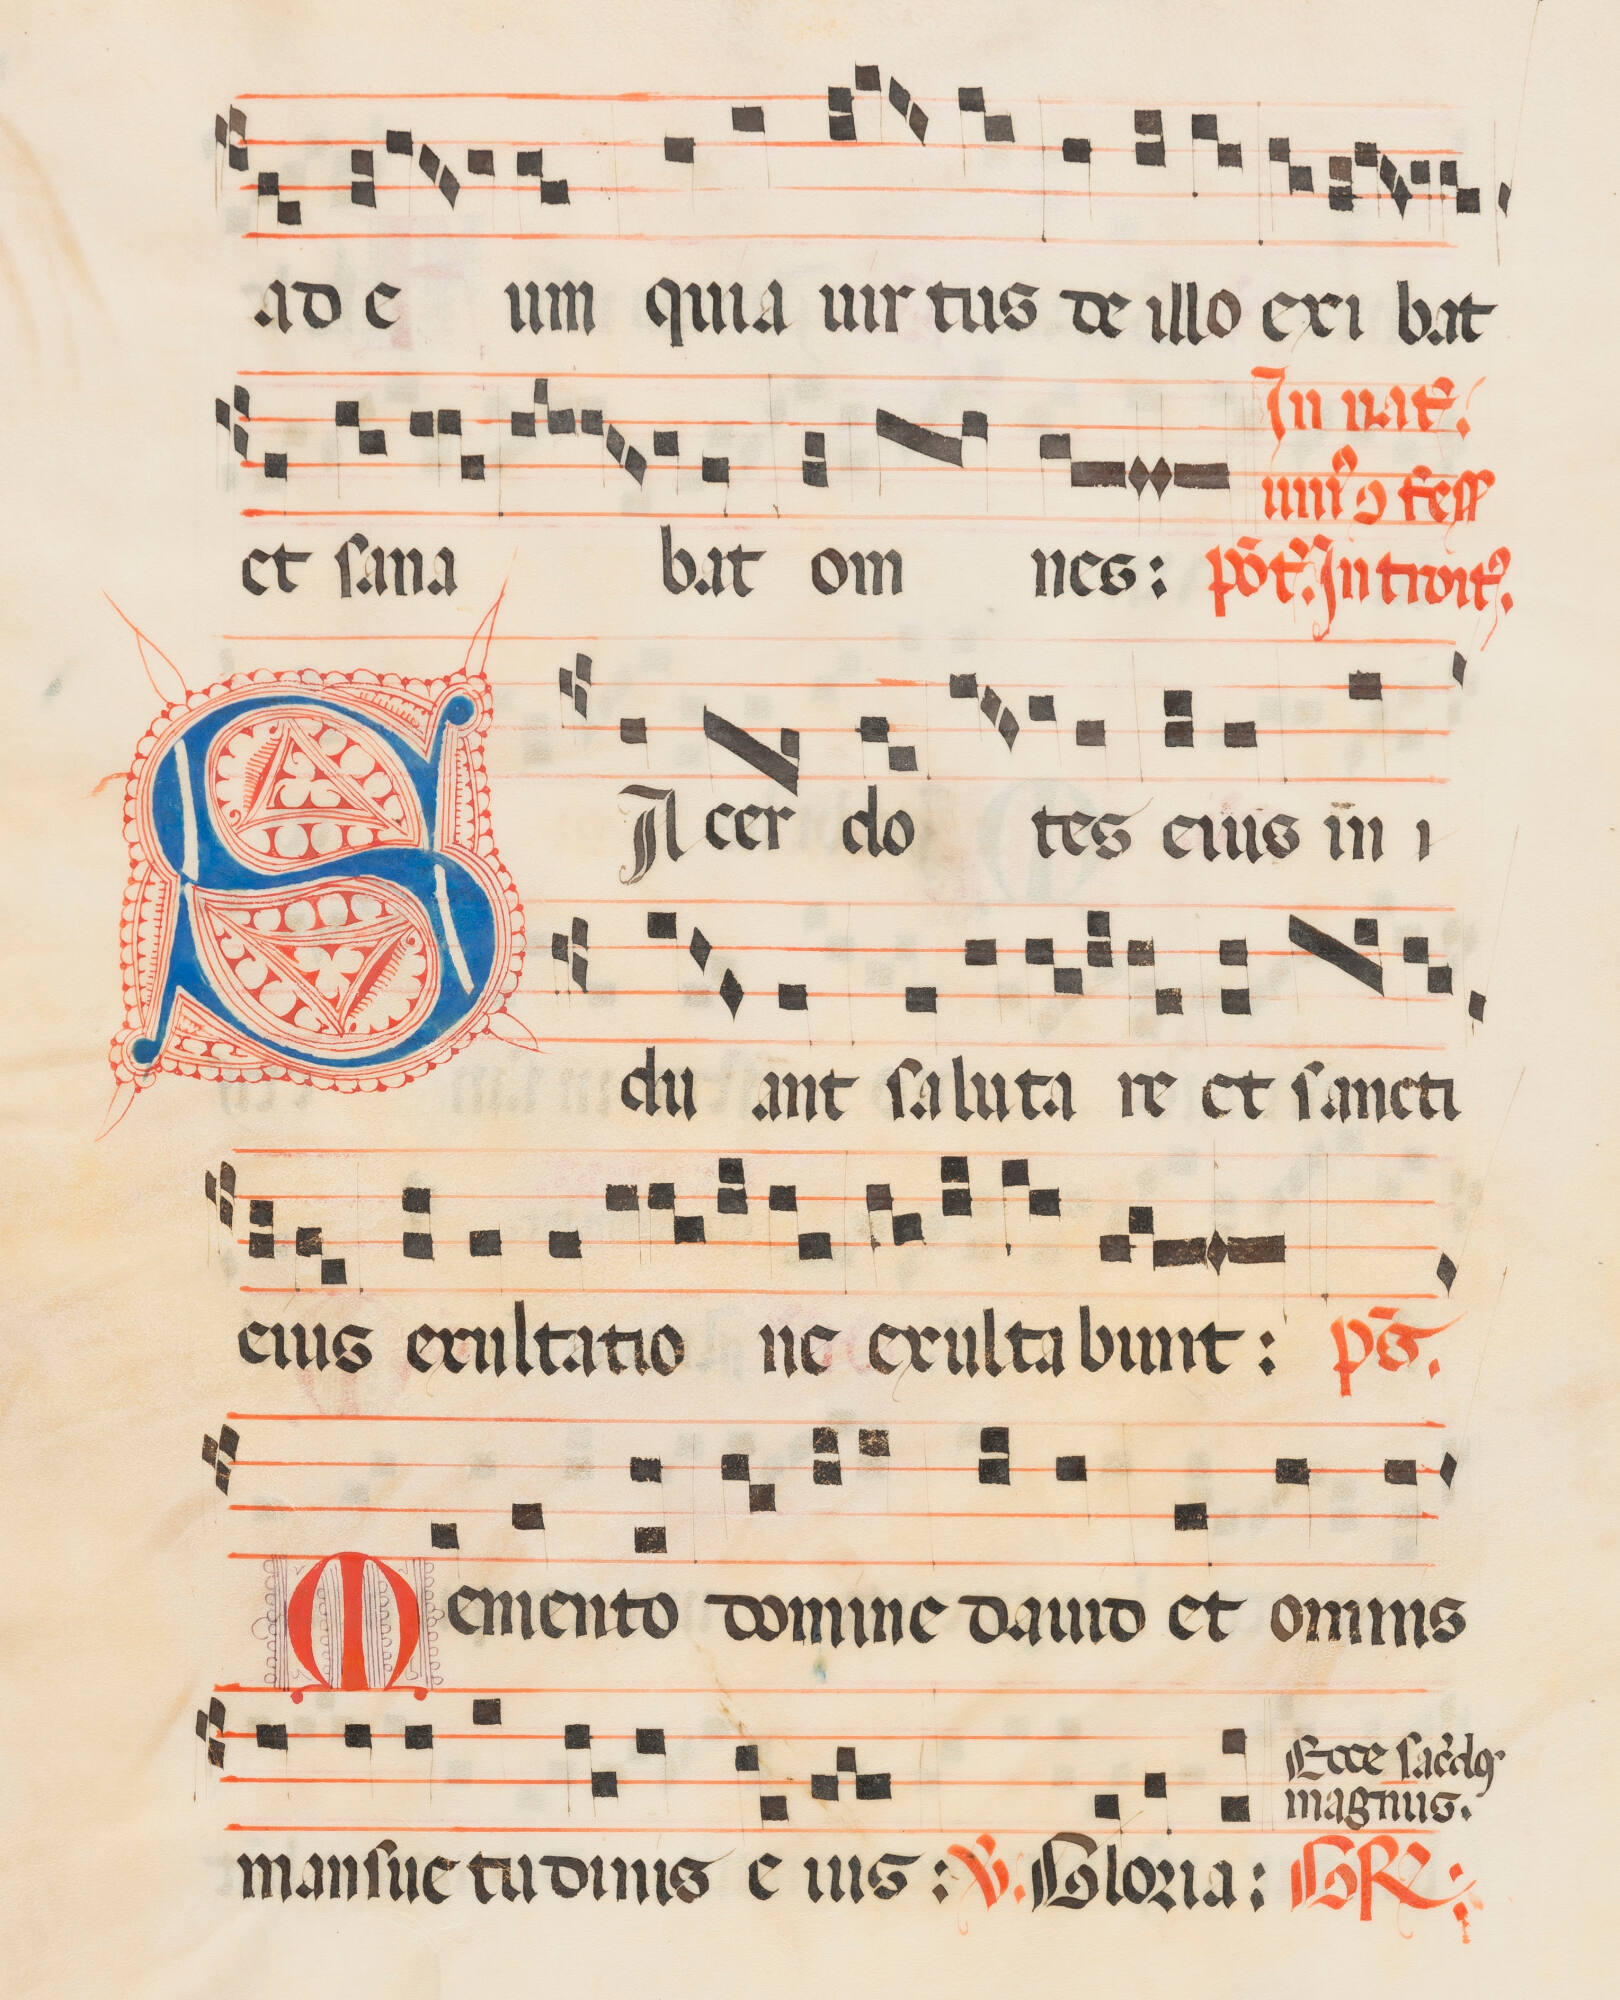 ad e um quia uir tus de illo exi bat
In nat̄.
uniꝰ ↄf̄ess
et sana bat om nes: pōt̄. Introitꝰ.
SA cer do tes eius in i
du ant saluta re et sancti
eius exultatio ne exultabunt: ps̄.
Memento domine dauid et omnis
Ecce sac̄dos
magnus.
mansuetudinis e ius: V. Gloria: GR.